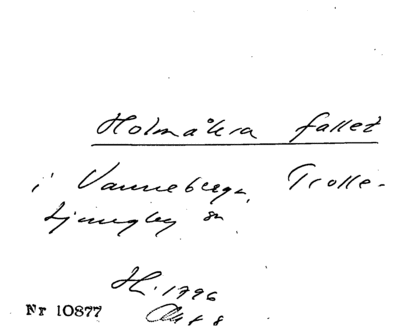 Holmåkra fallet
i Vanneberga, Trolle-
Ljungby sn
H. 1796
Akt 8
Nr 10877